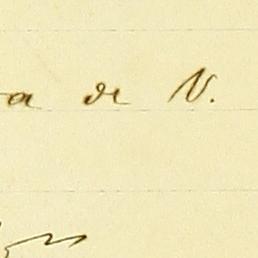 a de V.